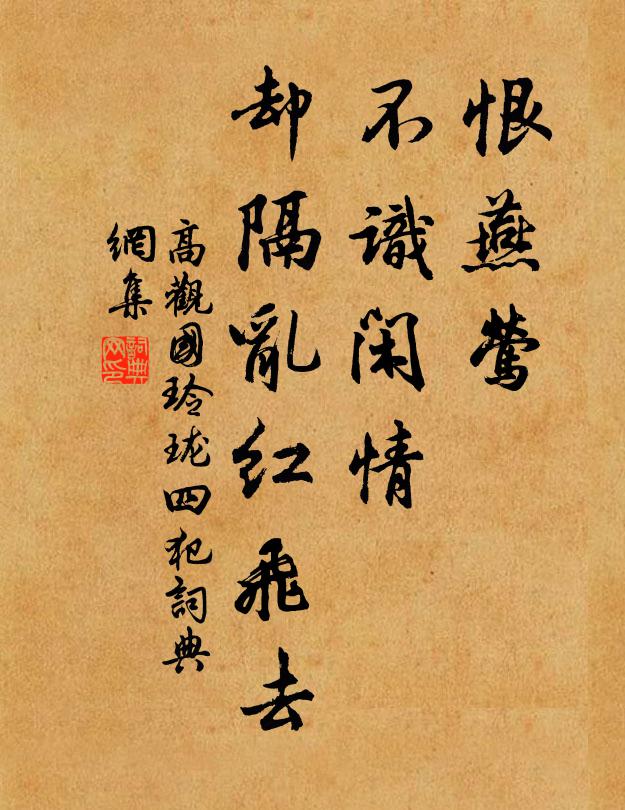 恨燕鶯
不識閑情
却隔亂紅飛去
高觀國玲瓏四犯詞典
網集
詞典
网印